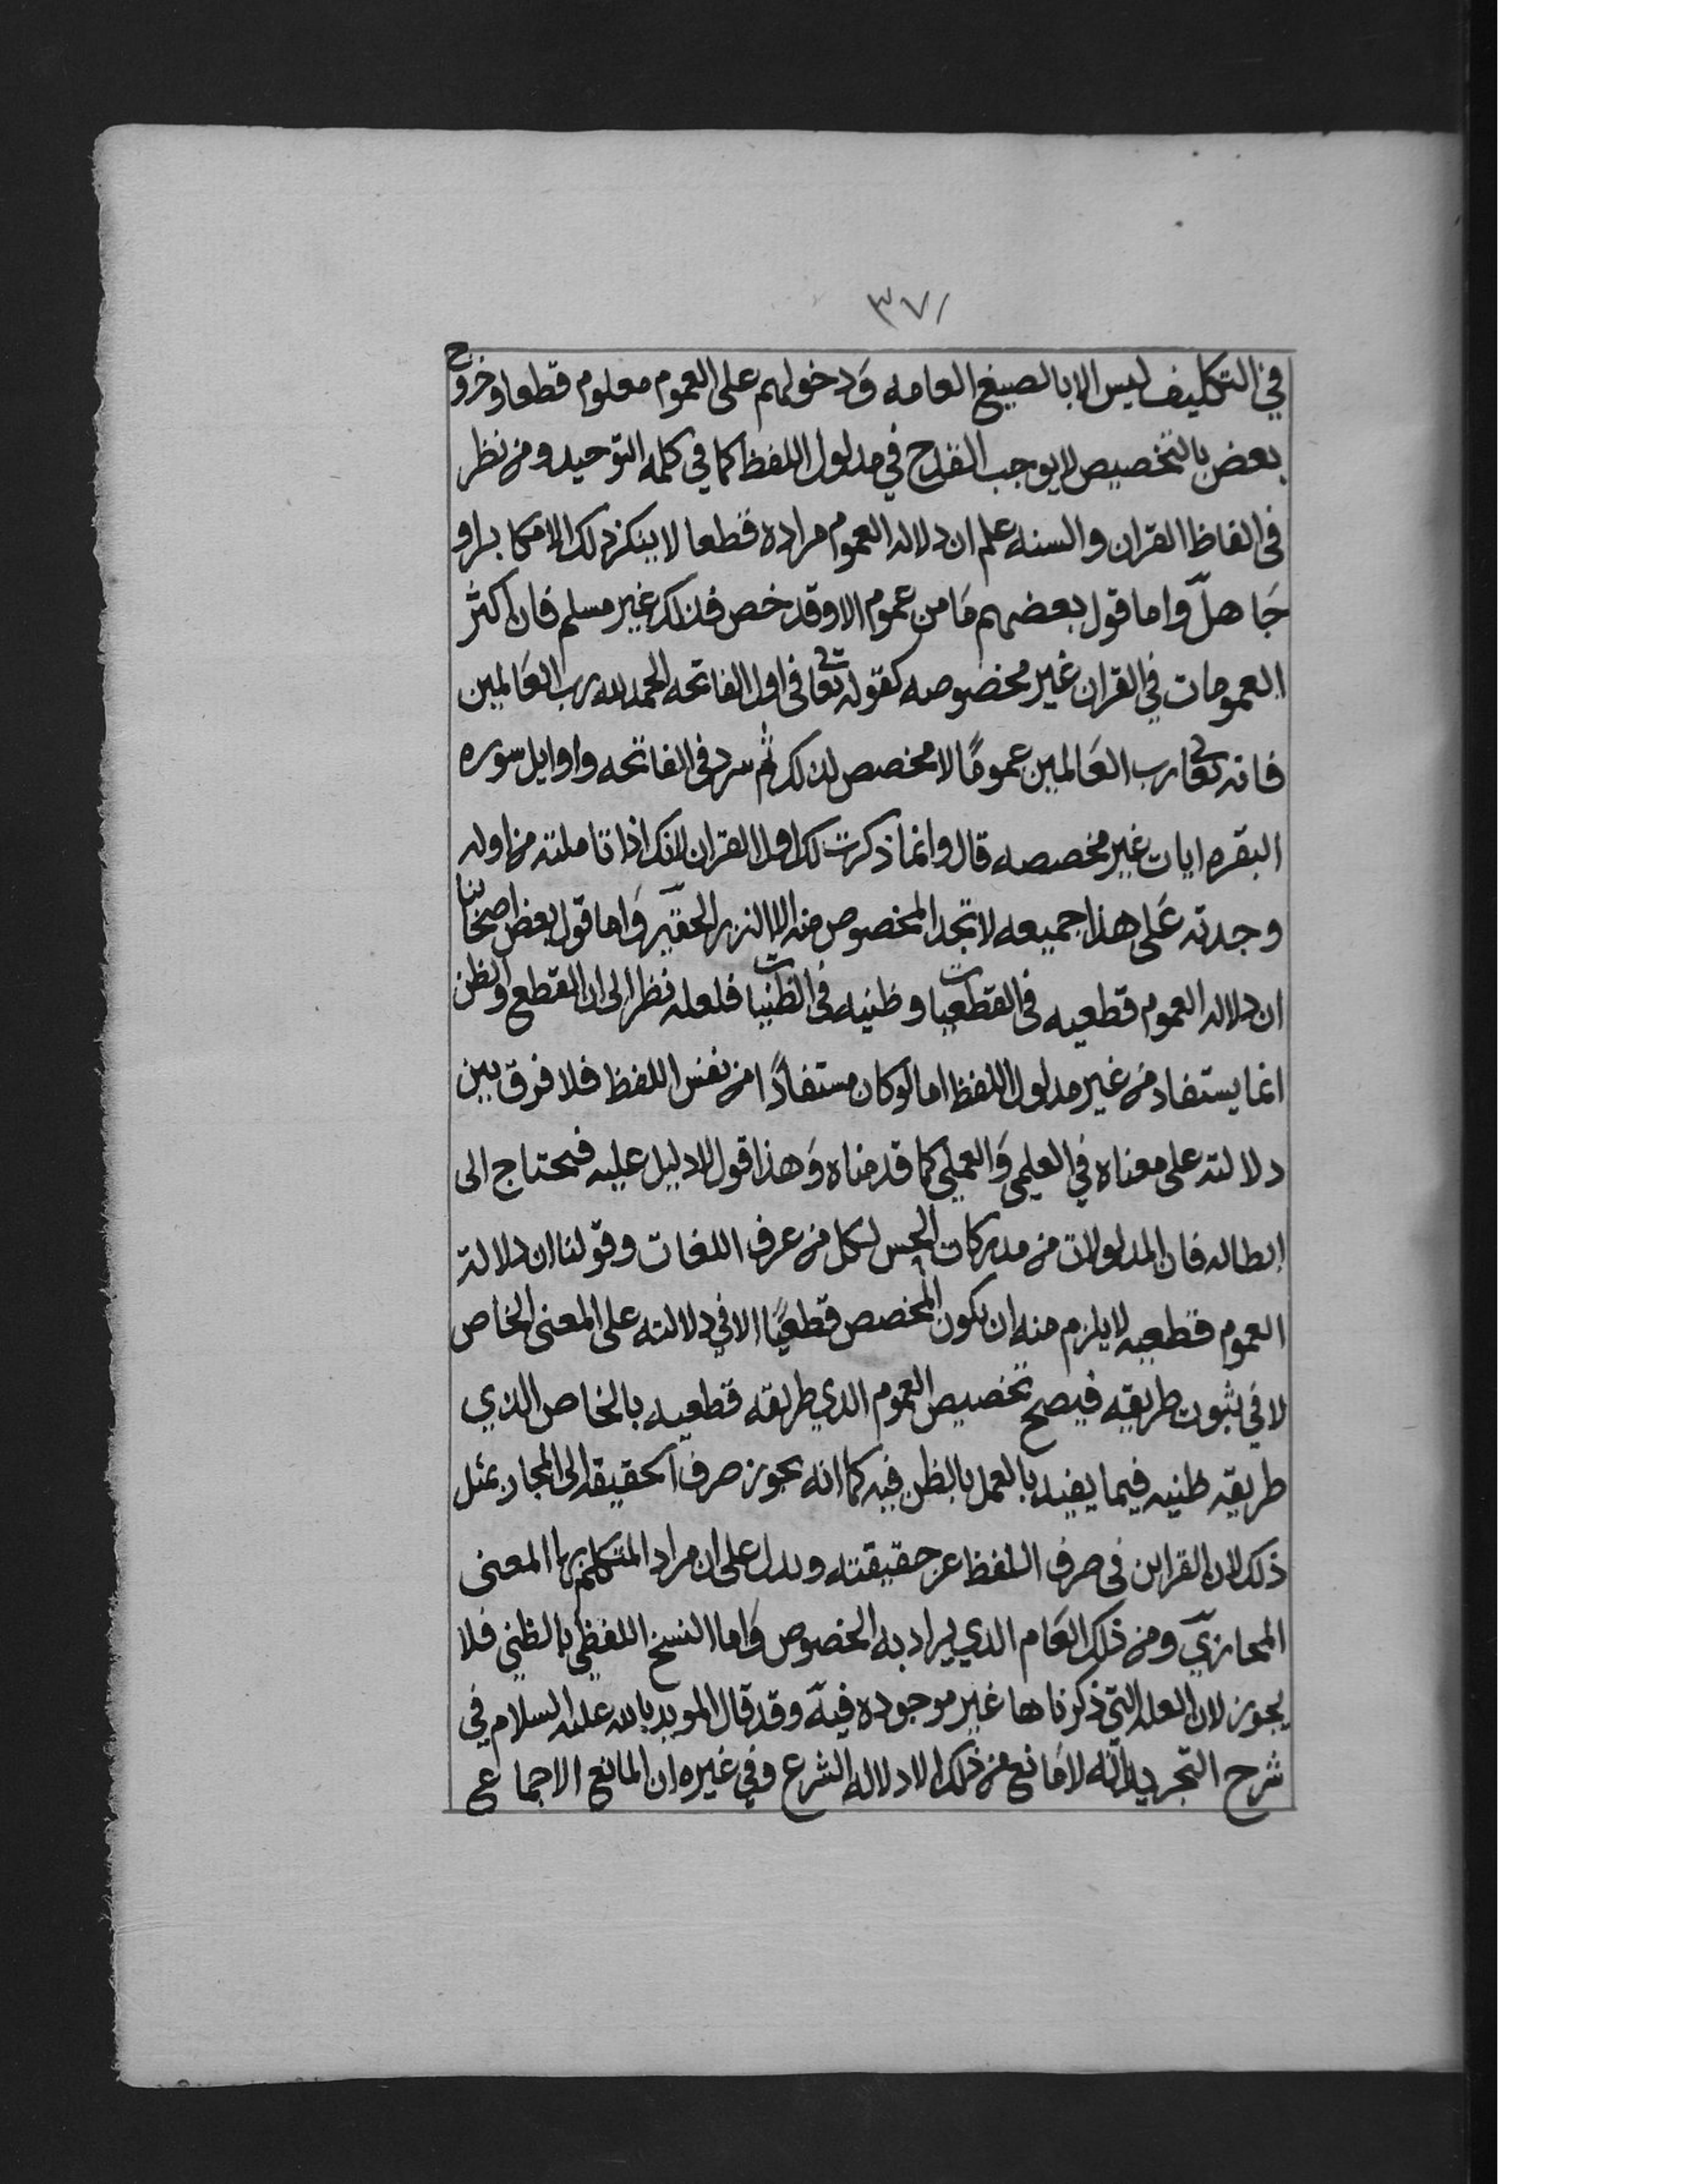 ٣٧١
في التكليف ليس الا بالصيغ العامه وَدخولهم على العموم معلوم قطعا وخروج
بعض بالتخصيص لا يوجب القدح في مدلول اللفظ كما في كلمه التوحيد ومن نظر
في الفاظ القران والسنه علم ان دلاله العموم مراده قطعا لا ينكر ذلك الا مكابر او
جَاهل واما قول بعضهم مَا من عموم الا وقد خص فذلك غير مسلم فان اكثر
العمومات في القران غير مخصوصه كقوله تعالى في اول الفاتحه الحمد لله رب العَالمين
فانه تعالى رب العَالمين عمومًا لا مخصص لذلك ثم سرد في الفاتحه واوايل سوره
البقره ايات غير مخصصه قال وانما ذكرت لك اول القران لانك اذا تاملته من اوله
وجدته عَلى هذا جميعه لا تجد المخصوص منه الا النزر الحقير وَاما قول بعض اصحَابنا
ان دلاله العموم قطعيه في القطعيات وظنيه في الظنيات فلعله نظر الى ان القطع والظن
انما يستفاد من غير مدلول اللفظ اما لو كان مستفادًا من نفس اللفظ فلا فرق بين
دلالته على معناه في العلمي وَالعملي كما قدمناه وَهذا قول لا دليل عليه فيحتاج الى
ابطاله فان المدلولات من مدركات الحس لكل من عرف اللغات وقولنا ان دلالة
العموم قطعيه لا يلزم منه ان يكون المخصص قطعيًا الا في دلالته على المعنى الخاص
لا في ثبوت طريقه فيصح تخصيص العموم الذي طريقه قطعيه بالخاص الذي
طريقه ظنيه فيما يفيد بالعمل بالظن فيه كما انه يجوز صرف الحقيقه الى المجاز بمثل
ذلك لان القراين في صرف اللفظ عن حقيقته وبدل على ان مراد المتكلم بها المعنى
المجازيّ ومن ذلك العَام الذي يراد به الخصوص وَاما النسخ اللفظي بالظني فلا
يجوز لان العله التي ذكرناها غير موجوده فيه وقد قال المويد بالله عليه السلام في
شرح التجريد انّه لا مَانع من ذلك الا دلاله الشرع وفي غيره ان المانع الاجماع